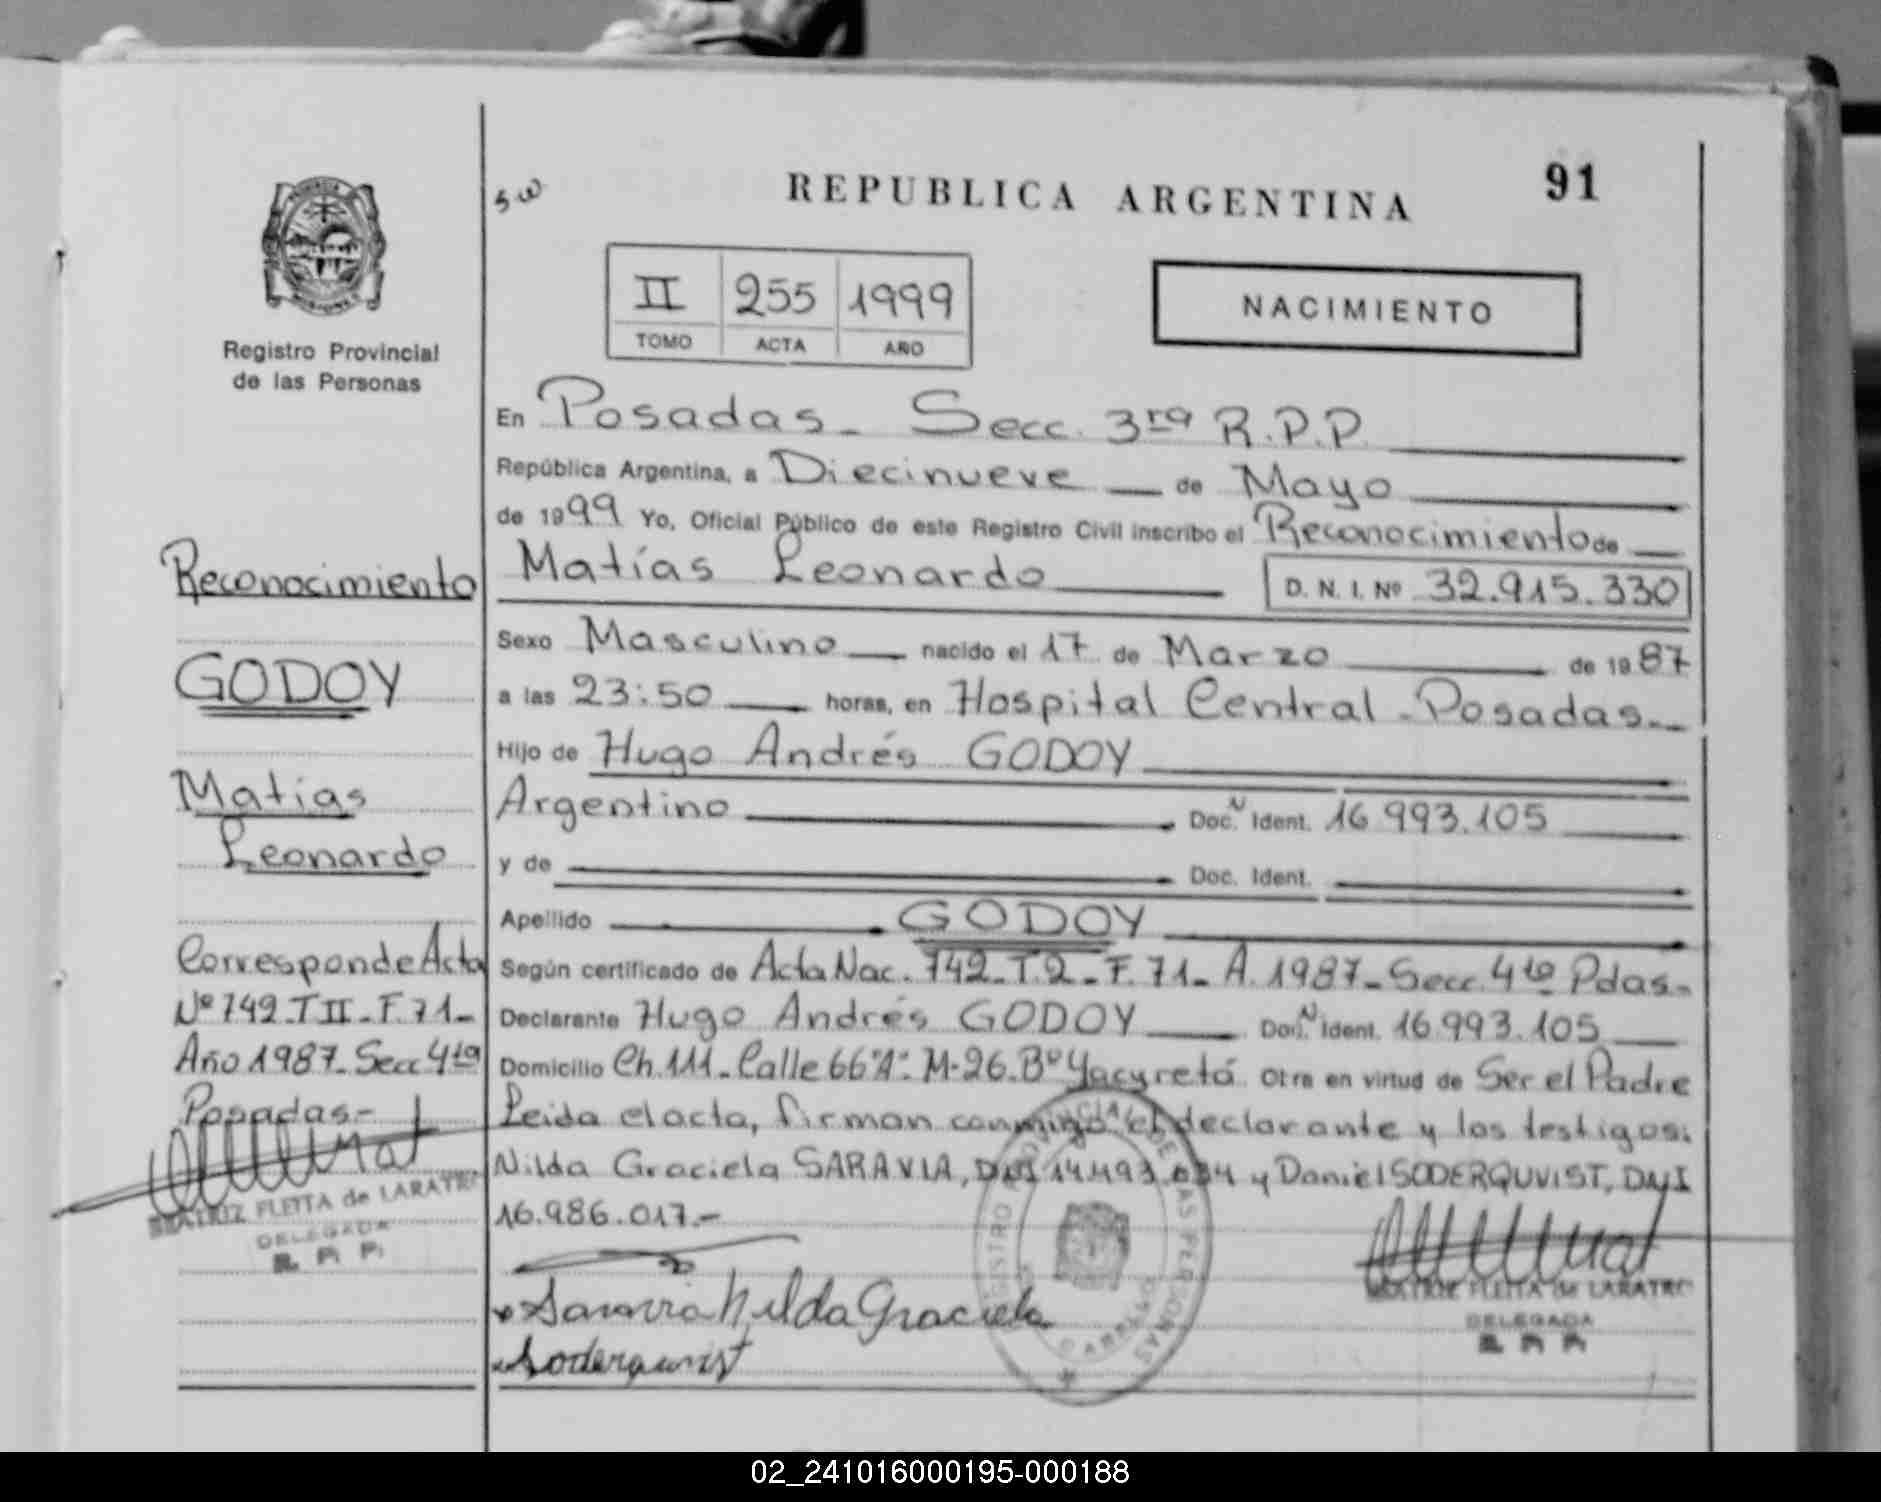 REPUBLICA ARGENTINA
91
II 255 1999
TOMO ACTA AÑO
NACIMIENTO
Registro Provincial
de las Personas
En Posadas - Secc. 3ra R.P.P.
República Argentina, a Diecinueve de Mayo
de 1999 Yo, Oficial Público de este Registro Civil inscribo el Reconocimiento de
Matías Leonardo D. N. I. Nº 32.915.330
Sexo Masculino nacido el 17 de Marzo de 1987
a las 23:50 horas, en Hospital Central - Posadas-
Hijo de Hugo Andrés GODOY
Argentino Doc. N Ident. 16.993.105
y de Doc. Ident.
Apellido GODOY
Según certificado de Acta Nac. 742-T.2-F.71-A.1987-Secc. 4ta Pdas.-
Declarante Hugo Andrés GODOY Doc. N Ident. 16.993.105
Domicilio Ch. 111 - Calle 66 "A" M-26-Bº Yacyretá Otra en virtud de Ser el Padre
Leida el acta, firman conmigo el declarante y los testigos:
Nilda Graciela SARAVIA, DNI 14.493.034 y Daniel SODERQUVIST, DNI
16.986.017.-
Saravia Nilda Graciela
Soderquvist
REGISTRO PROVINCIAL DE LAS PERSONAS
BEATRIZ FLEITA de LARATRO
DELEGADA
R P P
Reconocimiento
GODOY
Matías
Leonardo
Corresponde Acta
Nº 742-T II-F.71-
Año 1987-Secc 4ta
Posadas-
BEATRIZ FLEITA de LARATRO
DELEGADA
R P P
02_241016000195-000188